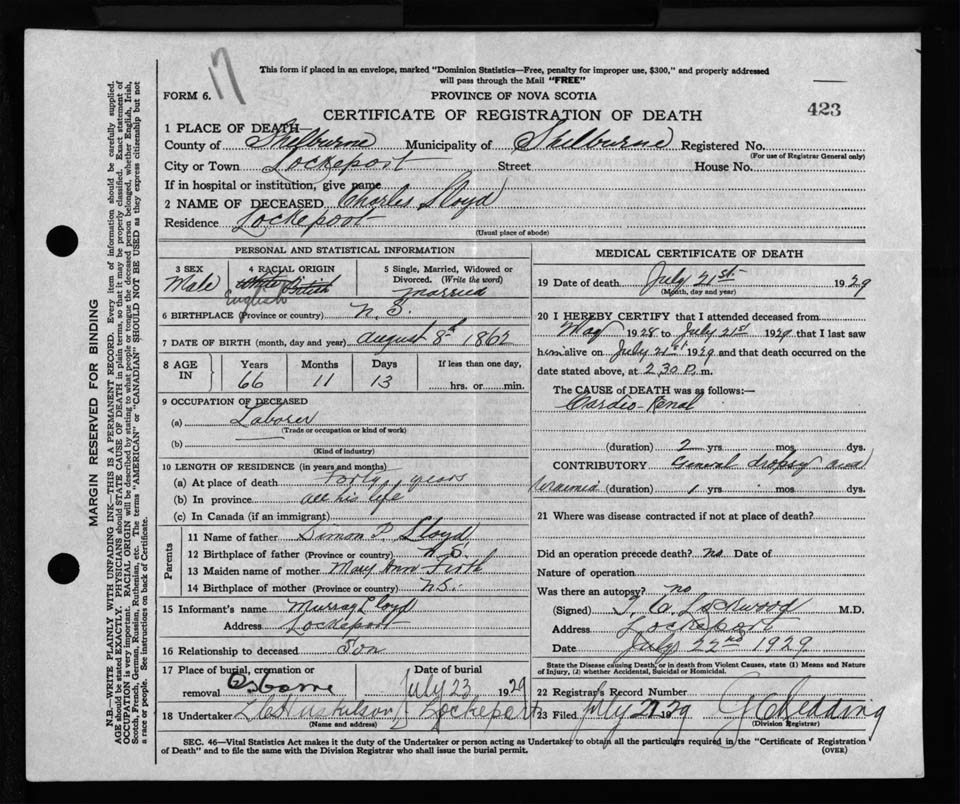 17
This form if placed in an envelope, marked "Dominion Statistics—Free, penalty for improper use, $300," and properly addressed
will pass through the Mail "FREE"
FORM 6.
PROVINCE OF NOVA SCOTIA
423
CERTIFICATE OF REGISTRATION OF DEATH
1 PLACE OF DEATH—
County of Shelburne Municipality of Shelburne Registered No.
(For use of Registrar General only)
City or Town Lockeport Street House No.
If in hospital or institution, give name
2 NAME OF DECEASED Charles Lloyd
Residence Lockeport
(Usual place of abode)
PERSONAL AND STATISTICAL INFORMATION
3 SEX 4 RACIAL ORIGIN 5 Single, Married, Widowed or
Divorced. (Write the word)
Male White British married
English
6 BIRTHPLACE (Province or country) N.S.
7 DATE OF BIRTH (month, day and year) august 8th 1862
8 AGE IN Years Months Days If less than one day,
66 11 13 hrs. or min.
9 OCCUPATION OF DECEASED
(a) Laborer
(Trade or occupation or kind of work)
(b)
(Kind of industry)
10 LENGTH OF RESIDENCE (in years and months)
(a) At place of death Forty years
(b) In province all his life
(c) In Canada (if an immigrant)
Parents
11 Name of father Simon P. Lloyd
12 Birthplace of father (Province or country) N.S.
13 Maiden name of mother Mary Ann Firth
14 Birthplace of mother (Province or country) N.S.
15 Informant's name Murray Lloyd
Address Lockeport
16 Relationship to deceased Son
17 Place of burial, cremation or Date of burial
removal Osborne July 23 1929
18 Undertaker Lockeport
(Name and address)
MEDICAL CERTIFICATE OF DEATH
19 Date of death July 21st 1929
(Month, day and year)
20 I HEREBY CERTIFY that I attended deceased from
May 1928 to July 21st 1929 that I last saw
him alive on July 21st 1929 and that death occurred on the
date stated above, at 2.30 P. m.
The CAUSE OF DEATH was as follows:—
Cardio-Renal
(duration) 2 yrs. mos. dys.
CONTRIBUTORY General dropsy and
Uraemia (duration) 1 yrs. mos. dys.
21 Where was disease contracted if not at place of death?
Did an operation precede death? no Date of
Nature of operation
Was there an autopsy? no
(Signed) T. C. Lockwood M.D.
Address Lockeport
Date July 22nd 1929
State the Disease causing Death, or in death from Violent Causes, state (1) Means and Nature
of Injury, (2) whether Accidental, Suicidal or Homicidal.
22 Registrar's Record Number
23 Filed July 1929 Redding
(Division Registrar)
SEC. 46—Vital Statistics Act makes it the duty of the Undertaker or person acting as Undertaker to obtain all the particulars required in the "Certificate of Registration
of Death" and to file the same with the Division Registrar who shall issue the burial permit. (OVER)
MARGIN RESERVED FOR BINDING
N.B.—WRITE PLAINLY WITH UNFADING INK—THIS IS A PERMANENT RECORD. Every item of information should be carefully supplied.
AGE should be stated EXACTLY. PHYSICIANS should STATE CAUSE OF DEATH in plain terms, so that it may be properly classified. Exact statement of
OCCUPATION is very important. RACIAL ORIGIN will be described by stating to what people or tongue the deceased person belonged, whether English, Irish,
Scotch, French, German, Russian, Ruthenian, etc. The terms "AMERICAN" or "CANADIAN" SHOULD NOT BE USED as they express citizenship but not
a race or people. See instructions on back of Certificate.